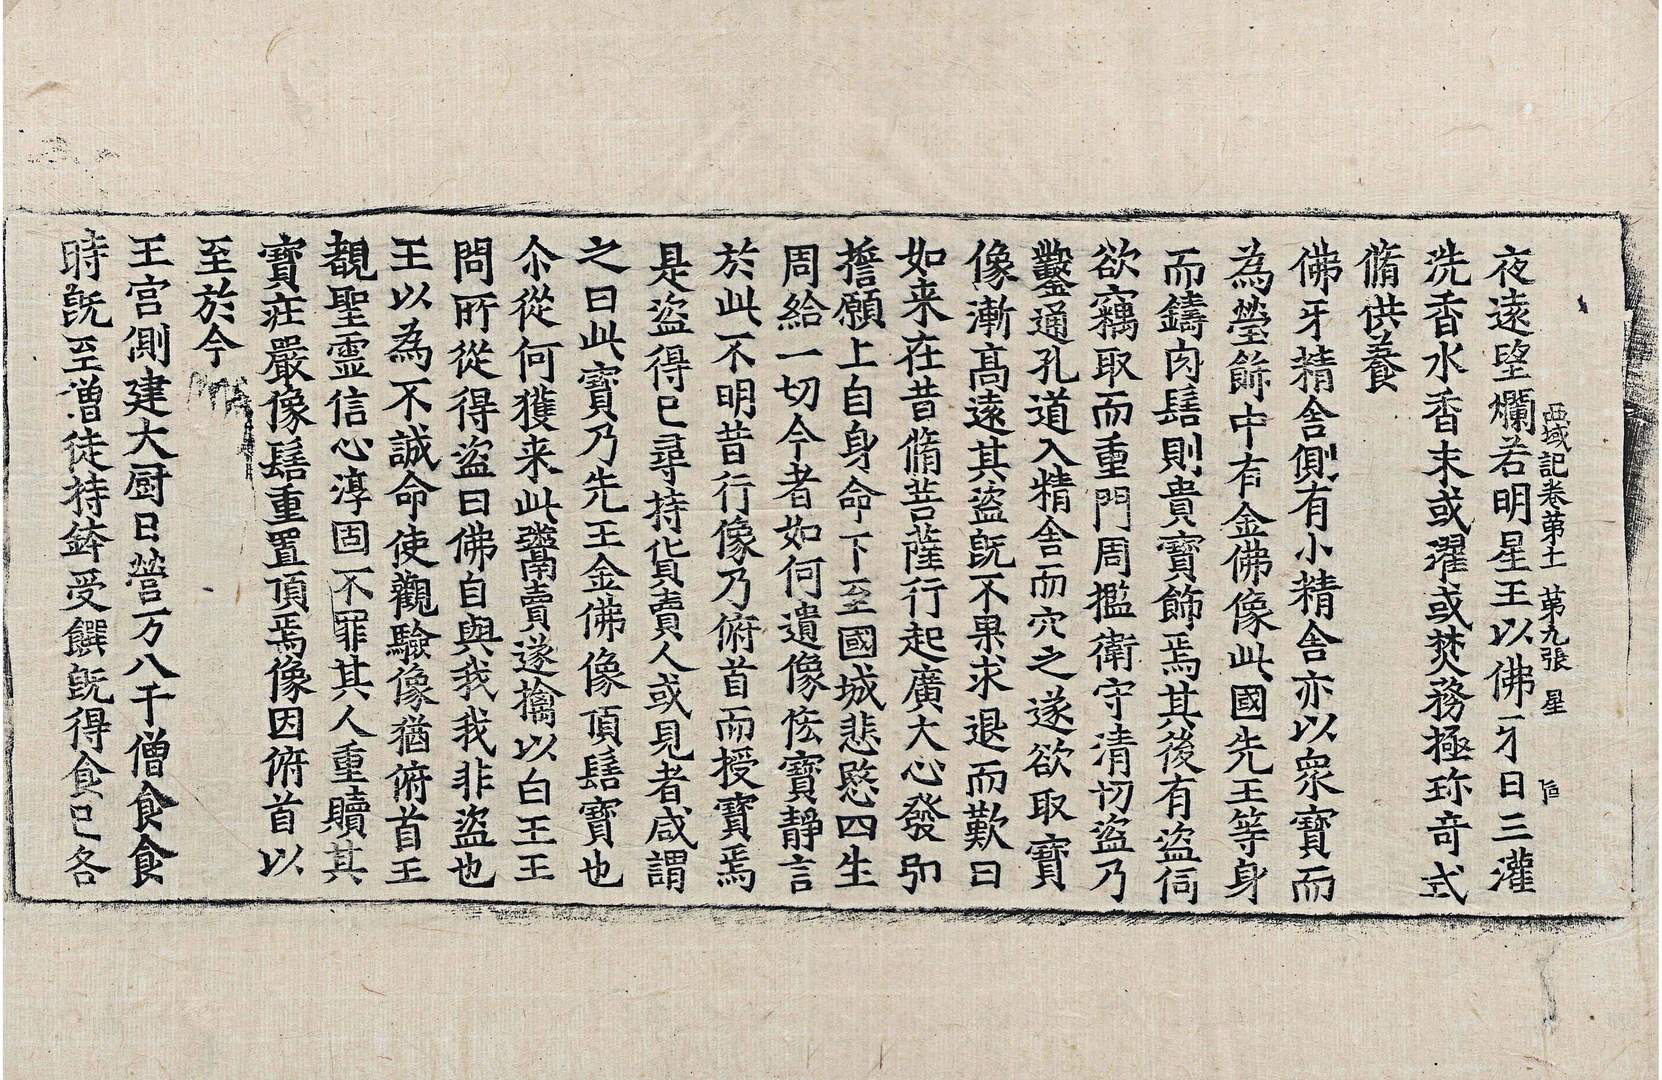 西域記卷第十一 第九張 星
夜遠望爛若明星王以佛牙日三灌
洗香水香末或濯或焚務極珎竒式
脩供養
佛牙精舍側有小精舍亦以衆寶而
為瑩飾中有金佛像此國先王等身
而鑄肉髻則貴寶飾焉其後有盜伺
欲竊取而重門周檻衛守清切盜乃
鑿通孔道入精舍而穴之遂欲取寶
像漸髙遠其盜旣不果求退而歎曰
如来在昔脩菩薩行起廣大心發𢎞
誓願上自身命下至國城悲愍四生
周給一切今者如何遺像恡寶靜言
於此不明昔行像乃俯首而授寶焉
是盜得已尋持貨賣人或見者咸謂
之曰此寶乃先王金佛像頂髻寶也
尒從何獲来此鬻賣遂擒以白王王
問所從得盜曰佛自與我我非盜也
王以為不誠命使觀驗像猶俯首王
覩聖霊信心淳固不罪其人重贖其
寶荘嚴像髻重置頂焉像因俯首以
至於今
王宫側建大厨日營万八千僧食食
時旣至僧徒持鉢受饌旣得食已各